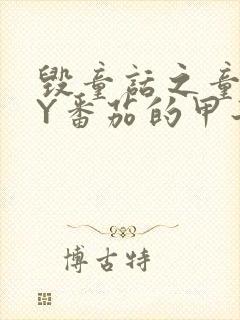 毁童话之童
Y番茄的甲
博古特